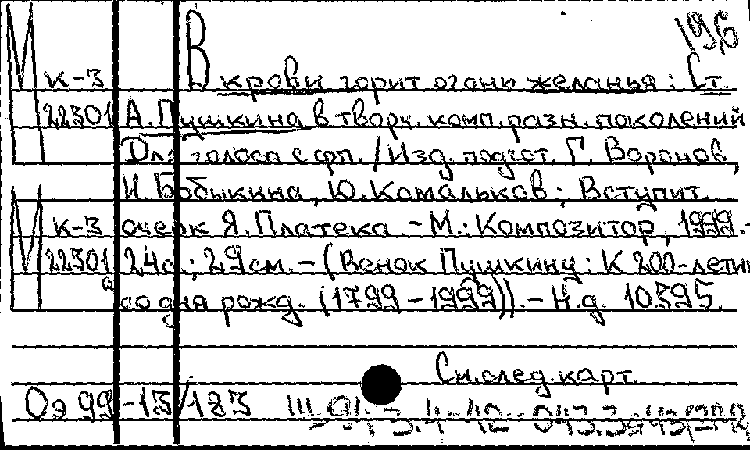 196
М к-3 В крови горит огонь желанья: Ст.
22301 А. Пушкина в творч. комп. разн. поколений
Для голоса с фп. / Изд. подгот. Г. Воронов,
И. Бобыкина, Ю. Комальков; Вступит.
М к-3 очерк Я. Платека. - М.: Композитор, 1999.-
22301 24с.; 29см. - (Венок Пушкину: К 200-летию
а со дня рожд. (1799-1999)). - Н.д. 10595.
См. след. карт.
Оэ 99-13/183